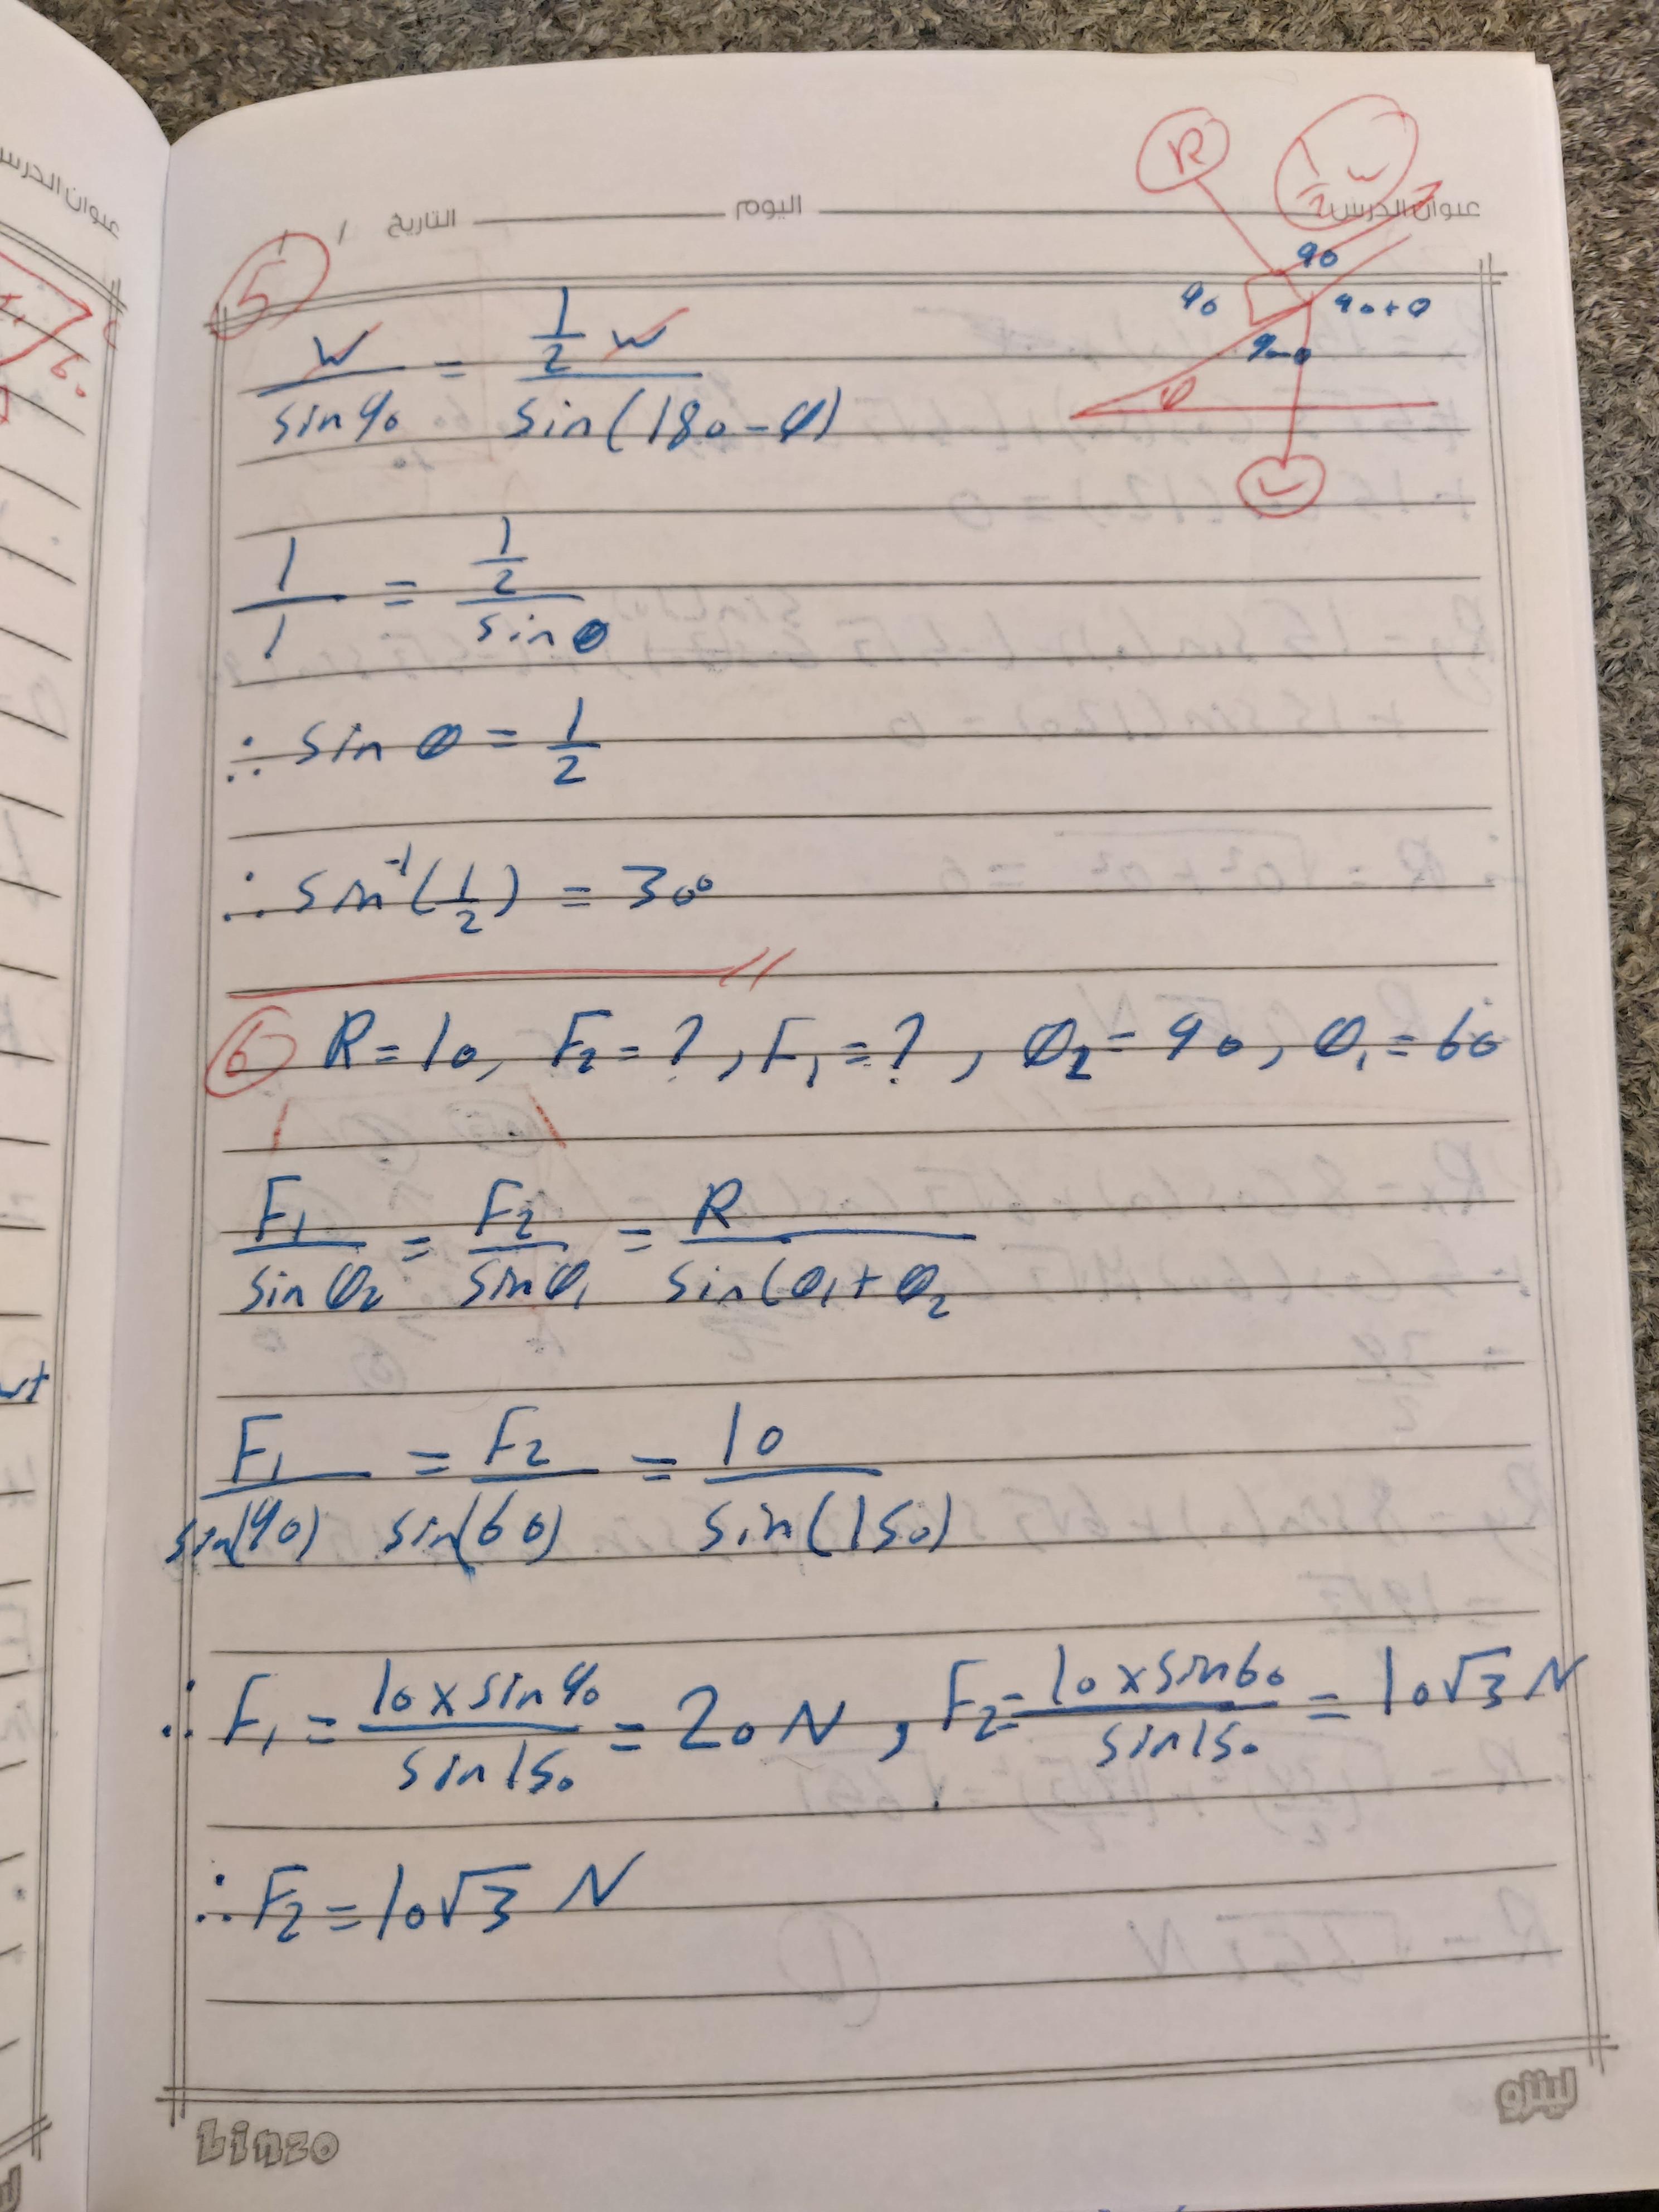 عنوان الدرس
اليوم
التاريخ / /
R
1/2 w
90
90
90+θ
90-θ
θ
5
w/sin90 = 1/2 w/sin(180-θ)
1/1 = 1/2/sinθ
∴ sin θ = 1/2
∴ sin⁻¹(1/2) = 30°
6 R=10, F₂=?, F₁=?, θ₂=90, θ₁=60
F₁/sinθ₂ = F₂/sinθ₁ = R/sin(θ₁+θ₂
F₁/sin(90) = F₂/sin(60) = 10/sin(150)
∴ F₁ = 10×sin90/sin150 = 20N, F₂= 10×sin60/sin150 = 10√3 N
∴ F₂ = 10√3 N
Linzo
لينزو